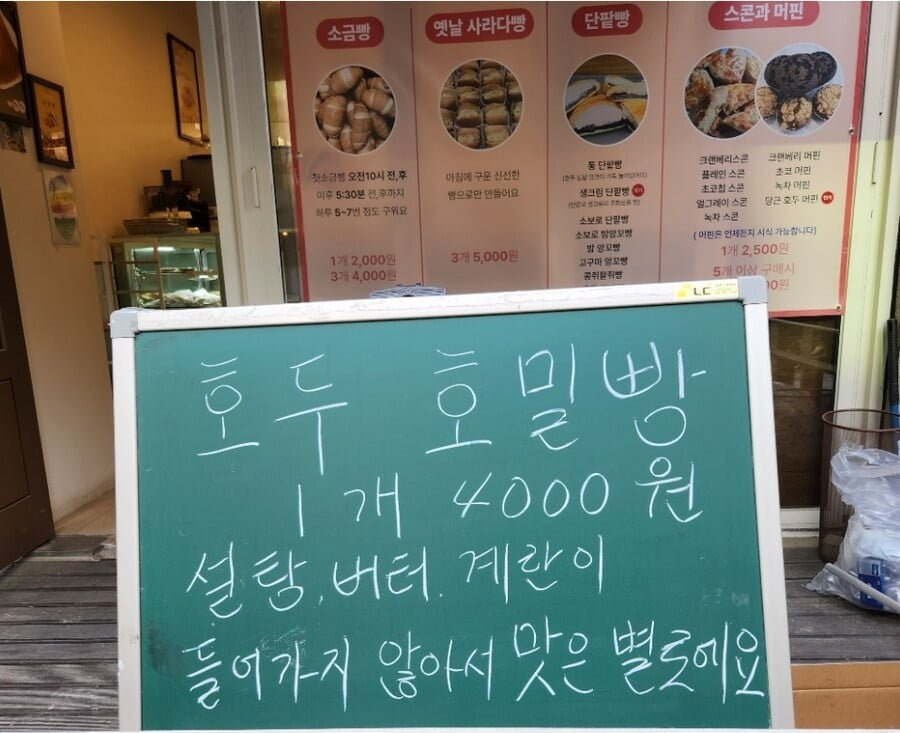 소금빵
첫소금빵 오전10시 전,후
이후 5:30분 전,후까지
하루 5~7번 정도 구워요
1개 2,000원
3개 4,000원
옛날 사라다빵
아침에 구운 신선한
빵으로만 만들어요
3개 5,000원
단팥빵
통 단팥빵
생크림 단팥빵
소보로 단팥빵
소보로 밤앙꼬빵
밤 앙꼬빵
고구마 앙꼬빵
콩쥐팥쥐빵
스콘과 머핀
크랜베리스콘
플레인 스콘
초코칩 스콘
얼그레이 스콘
녹차 스콘
크랜베리 머핀
초코 머핀
녹차 머핀
당근 호두 머핀
( 머핀은 언제든지 시식 가능합니다)
1개 2,500원
5개 이상 구매시
00원
LC
호두 호밀빵
1개 4000원
설탕, 버터, 계란이
들어가지 않아서 맛은 별로에요